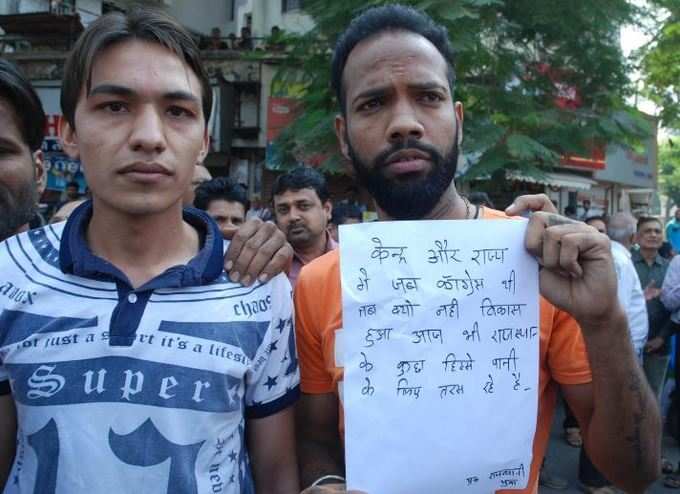 केन्द्र और राज्य
में जब काँग्रेस थी
तब क्यो नही विकास
हुआ आज भी राजस्थान
के कुछ हिस्से पानी
के लिए तरस रहे है -
एक राजस्थानी
युवा
chaos
not just a sport it's a lifes
Super
17